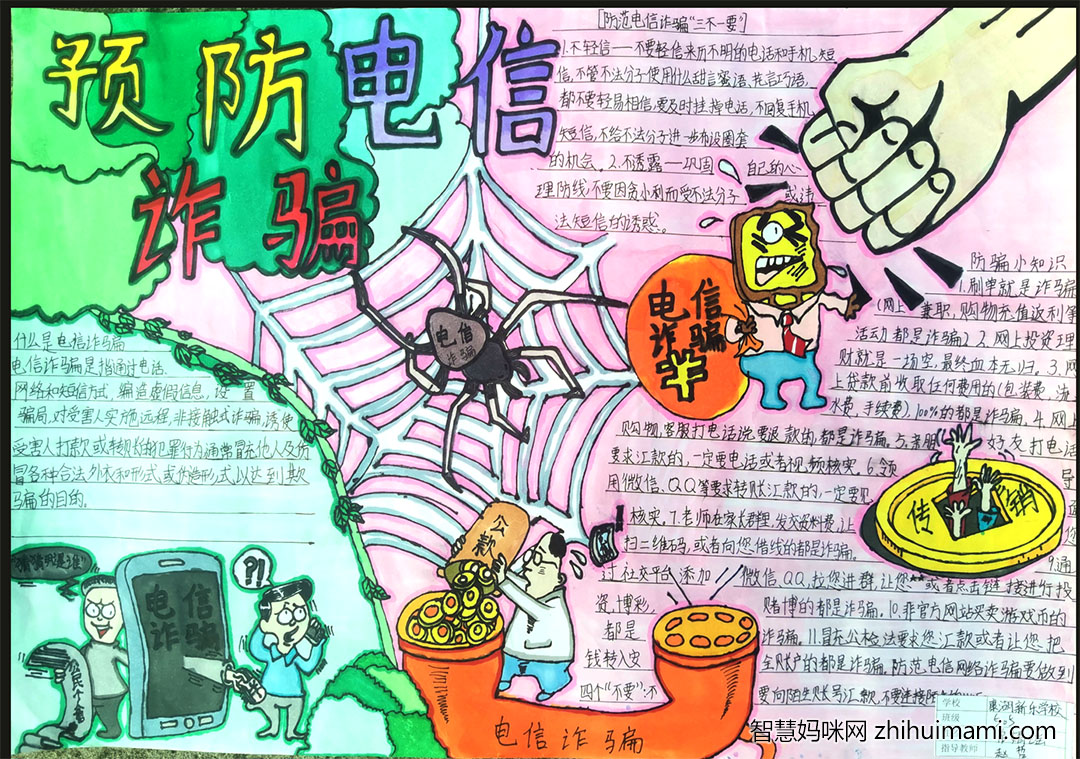 预防电信
诈骗
[防范电信诈骗"三不一要"]
1.不轻信——不要轻信来历不明的电话和手机短
信,不管不法分子使用什么甜言蜜语、花言巧语,
都不要轻易相信,要及时挂掉电话,不回复手机
短信,不给不法分子进一步布设圈套
的机会。2.不透露——巩固 自己的心
理防线,不要因贪小利而受不法分子 或违
法短信的诱惑。
电信
诈骗
电信
诈骗
防骗小知识
1.刷单就是诈骗
(网上兼职,购物充值返利等
活动)都是诈骗)2.网上投资理
财就是一场空,最终血本无归。3.网
上贷款前收取任何费用的(包装费、流
水费、手续费)100%的都是诈骗。4.网上
购物,客服打电话说要退款的,都是诈骗。5.亲朋 好友打电话
要求汇款的,一定要电话或者视频核实。6.领 导
用微信、QQ等要求转账汇款的,一定要见
核实。7.老师在家长群里,发交资料费,让
扫二维码,或者向您借钱的都是诈骗。 9.通
过社交平台添加 微信、QQ,拉您进群,让您 或者点击链接进行投
资,博彩, 赌博的都是诈骗。10.非官方网站买卖游戏币的
都是 诈骗。11.冒充公检法要求您汇款或者让您把
钱转入安 全账户的都是诈骗。防范电信网络诈骗要做到
四个"不要":不 要向陌生账号汇款,不要连接
什么是电信诈骗
电信诈骗是指通过电话、
网络和短信方式,编造虚假信息,设置
骗局,对受害人实施远程、非接触式诈骗,诱使
受害人打款或转账的犯罪行为通常冒充他人及仿
冒各种合法外衣和形式或伪造形式以达到欺
骗的目的。
传销
公款
猜猜我是谁!
?!
电信
诈骗
电信诈骗
学校
班级
指导教师
智慧妈咪网 zhihuimami.com